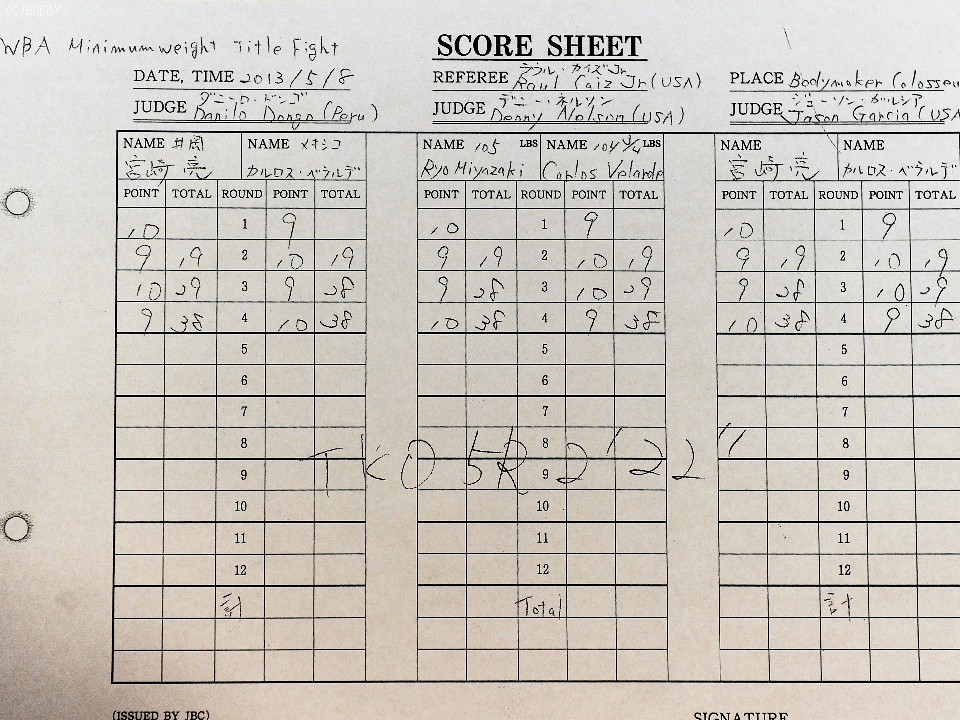 (C)BOBBY
WBA Minimumweight Title Fight
SCORE SHEET
DATE, TIME 2013/5/8
REFEREE ラウル・カイズJr Raul Caiz Jr (USA)
PLACE Bodymaker Colosseu
JUDGE ダニーロ・ドンゴ Danilo Dongo (Peru)
JUDGE デニー・ネルソン Denny Nelson (USA)
JUDGE ジェーソン・ガルシア Jason Garcia (USA
NAME 井岡 NAME メキシコ NAME 105 LBS NAME 104 3/4 LBS NAME NAME
宮崎 亮 カルロス・ベラルデ Ryo Miyazaki Carlos Velarde 宮崎 亮 カルロス・ベラルデ
POINT TOTAL ROUND POINT TOTAL POINT TOTAL ROUND POINT TOTAL POINT TOTAL ROUND POINT TOTAL
10 1 9 10 1 9 10 1 9
9 19 2 10 19 9 19 2 10 19 9 19 2 10 19
10 29 3 9 28 9 28 3 10 29 9 28 3 10 29
9 38 4 10 38 10 38 4 9 38 10 38 4 9 38
5 5 5
6 6 6
7 7 7
8 8 8
TKO 5R 2'22"
9 9 9
10 10 10
11 11 11
12 12 12
計 Total 計
(ISSUED BY JBC) SIGNATURE